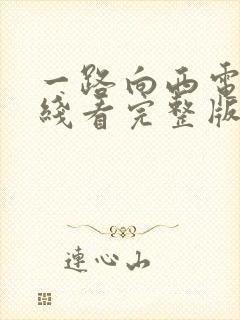 一路向西電
綫看完整版
連心山